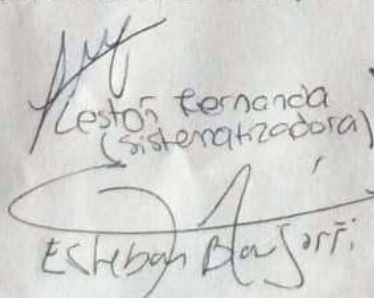 Lestón Fernanda
(sistematizadora)
Esteban